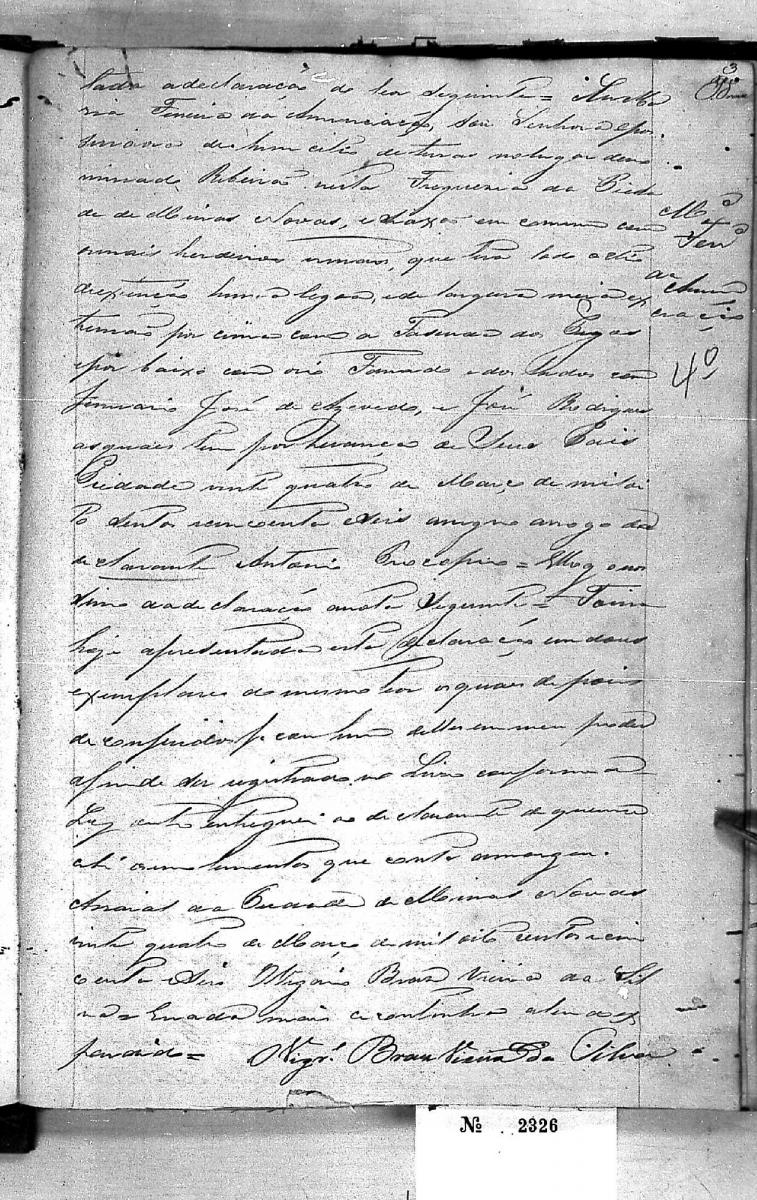 3
tada a declaração do teor seguinte = Eu Ma
ria Ferreira da Annunciação, sou Senhora e pos
suidora de hum citio de terras no lugar deno
minado Ribeirão nesta Freguezia da Pieda
de de Minas Novas, em comum com
os mais herdeiros irmaos, que terá todo o citio
de extenção huma legoa, e de largura meia ex
trema por cima com a Fazenda dos
e por baixo com o rio Fanado e dos lados com
Januario José de Azevedo, e José Rodrigues
as quais tem por herança de Seus Pais
Piedade vinte quatro de Março de mil oi
to centos e cincoenta e Seis assigno a rogo da
declarante Antonio Procopio =
da declaração a nota Seguinte = Foi me
hoje apresentada esta declaração em dous
exemplares do mesmo teor os quaes depois
de conferidos ficou hum delles em meu poder
afim de ser registrado no Livro conforme a
Ley e outro entreguei ao declarante de quem re
cebi os emolumentos que consta a margem.
Arraial da Piedade de Minas Novas
vinte quatro de Março de mil oito centos e cin
coenta e Seis O Vigario Braz Vieira da Sil
va = E nada mais se continha alem do ex
pendido = O Vigr.º Braz Vieira da Silva
Mª
Ferrª
da Annun
ciação
4º
Nº 2326